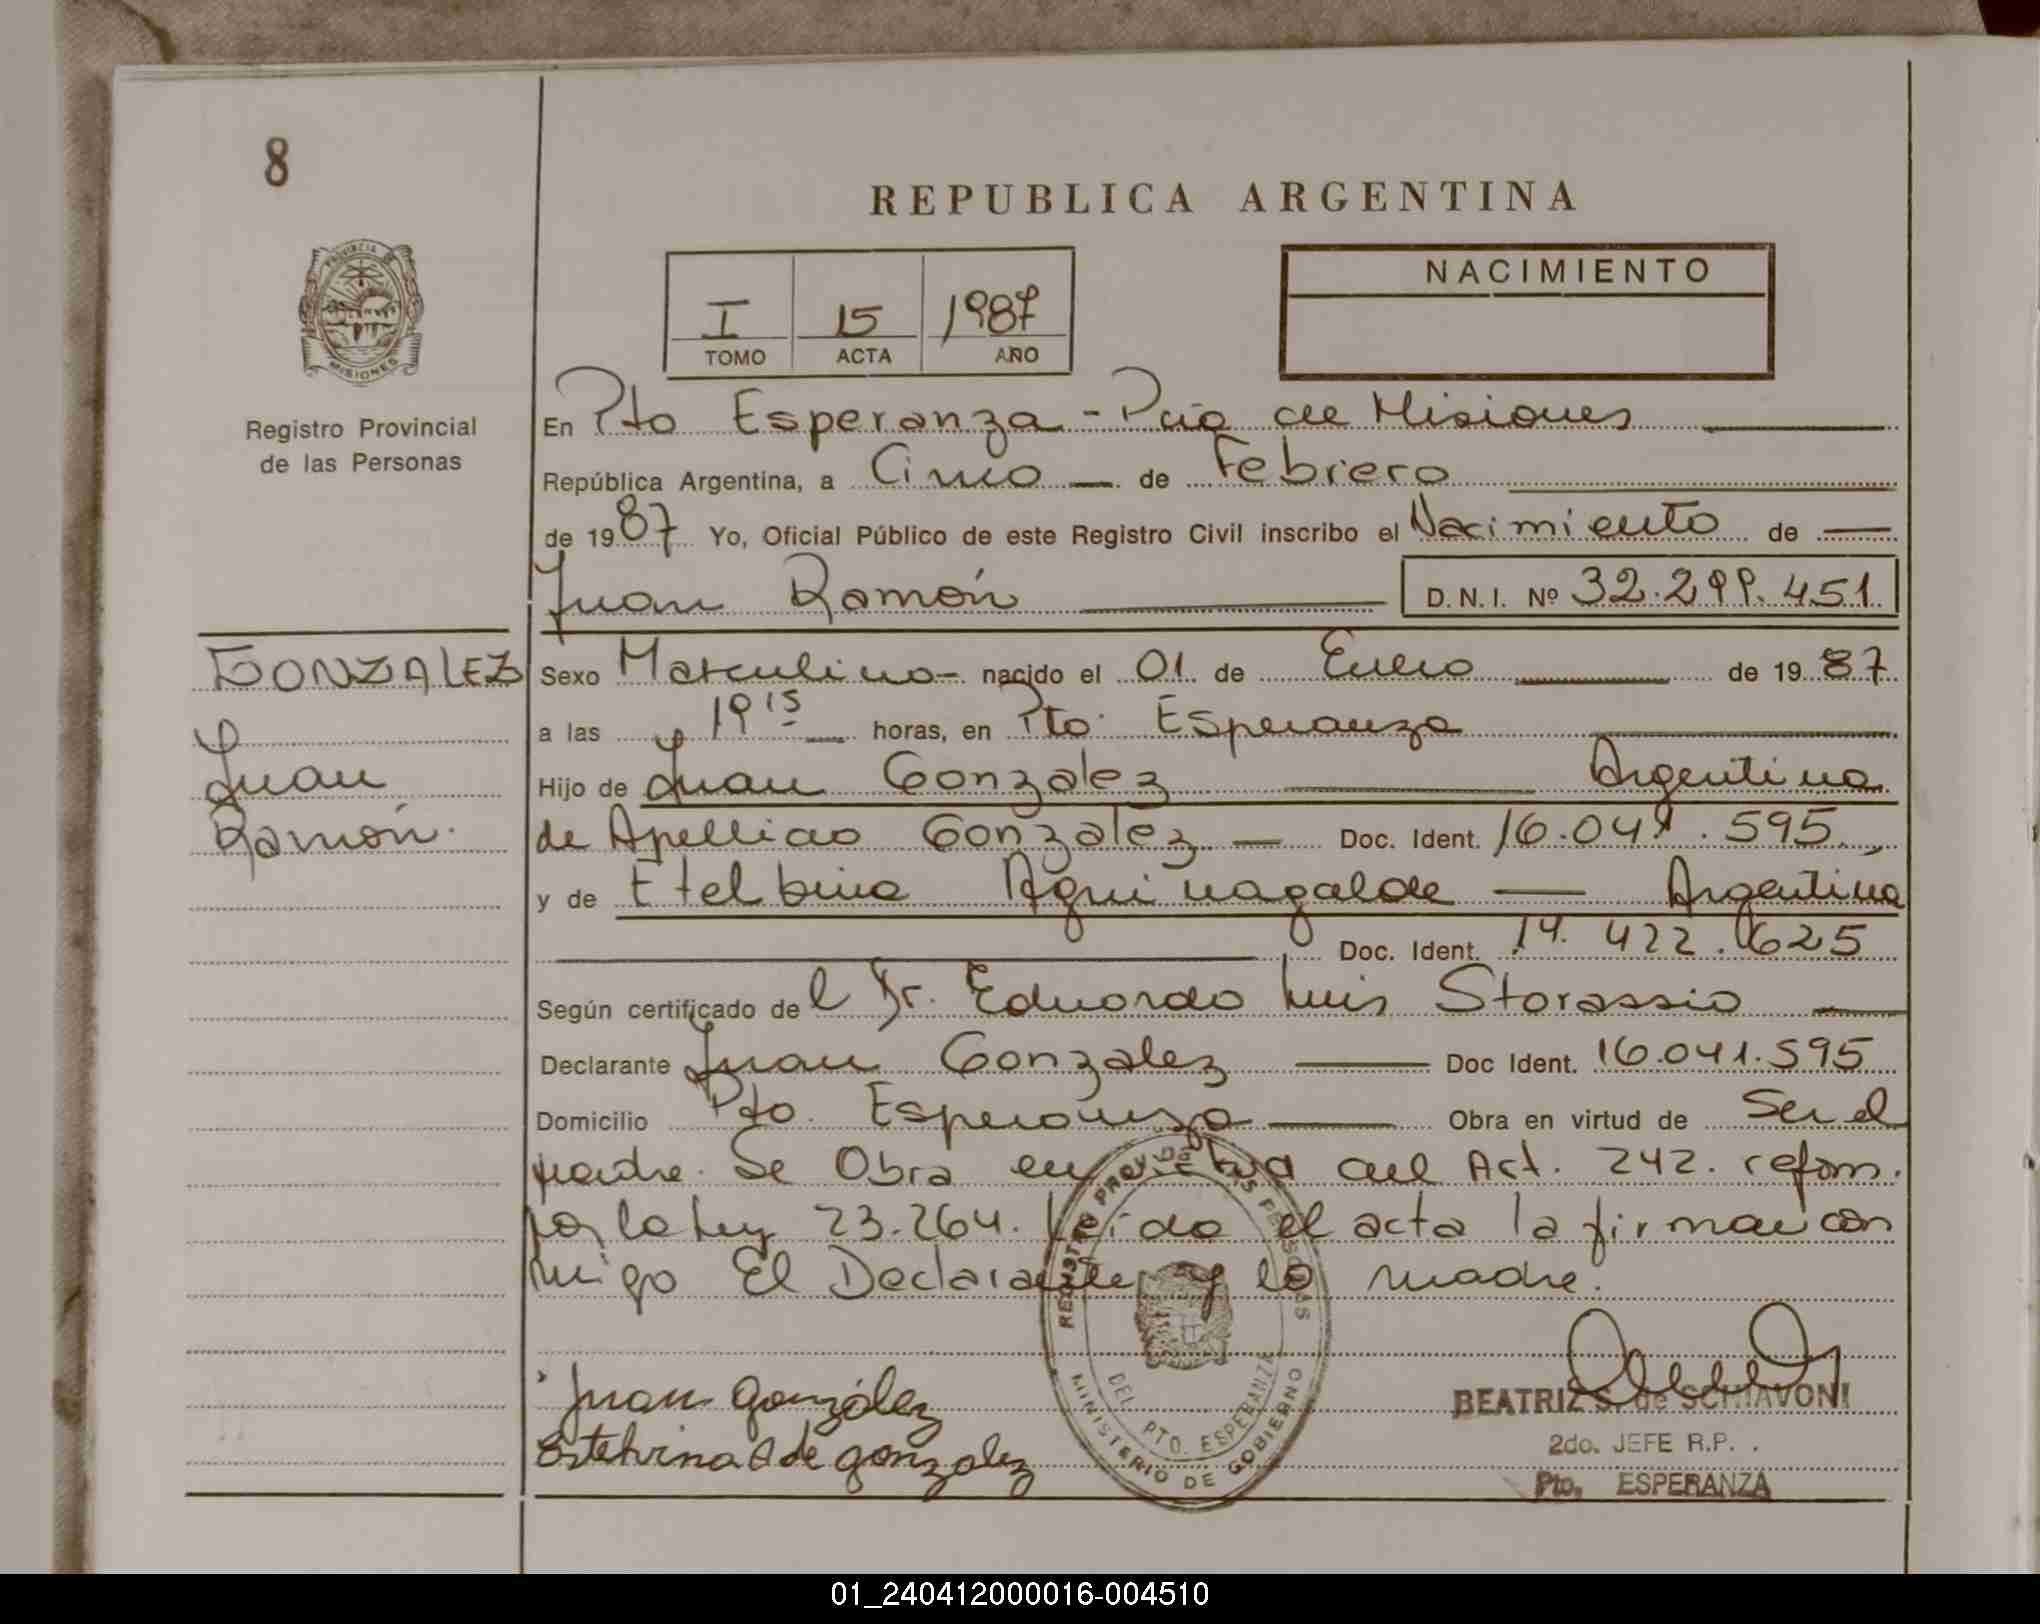 8
REPUBLICA ARGENTINA
PROVINCIA DE
MISIONES
Registro Provincial
de las Personas
I 15 1987
TOMO ACTA AÑO
NACIMIENTO
En Pto Esperanza - Pcia de Misiones
República Argentina, a Cinco de Febrero
de 1987 Yo, Oficial Público de este Registro Civil inscribo el Nacimiento de
Juan Ramón D.N.I. Nº 32.299.451
GONZALEZ
Juan
Ramón.
Sexo Masculino - nacido el 01 de Enero de 1987
a las 19 15 horas, en Pto. Esperanza
Hijo de Juan Gonzalez Argentino
de Apellido Gonzalez Doc. Ident. 16.041.595
y de Etelbina Aguinagalde Argentina
Doc. Ident. 14.422.625
Según certificado de l Dr. Eduardo Luis Storassio
Declarante Juan Gonzalez Doc Ident. 16.041.595
Domicilio Pto. Esperanza Obra en virtud de Ser el
padre. Se Obra en virtud del Art. 242. reform.
por la Ley 23.264. Leída el acta la firman con
migo El Declarante y la madre.
Juan González
Estelvina A de gonzalez
REGISTRO PROV. DE LAS PERSONAS
DEL PTO. ESPERANZA
MINISTERIO DE GOBIERNO
BEATRIZ S. de SCHIAVONI
2do. JEFE R.P.
Pto. ESPERANZA
01_240412000016-004510